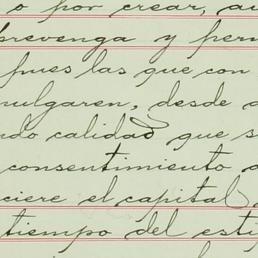 o por crear, au
prevenga y perm
pues las que con
mulgaren, desde a
ndo calidad que s
consentimiento a
ciere el capital,
tiempo del esti